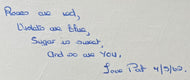 Roses are red,
Violets are blue,
Sugar is sweet,
And so are YOU.
Love Pat 4/9/62.